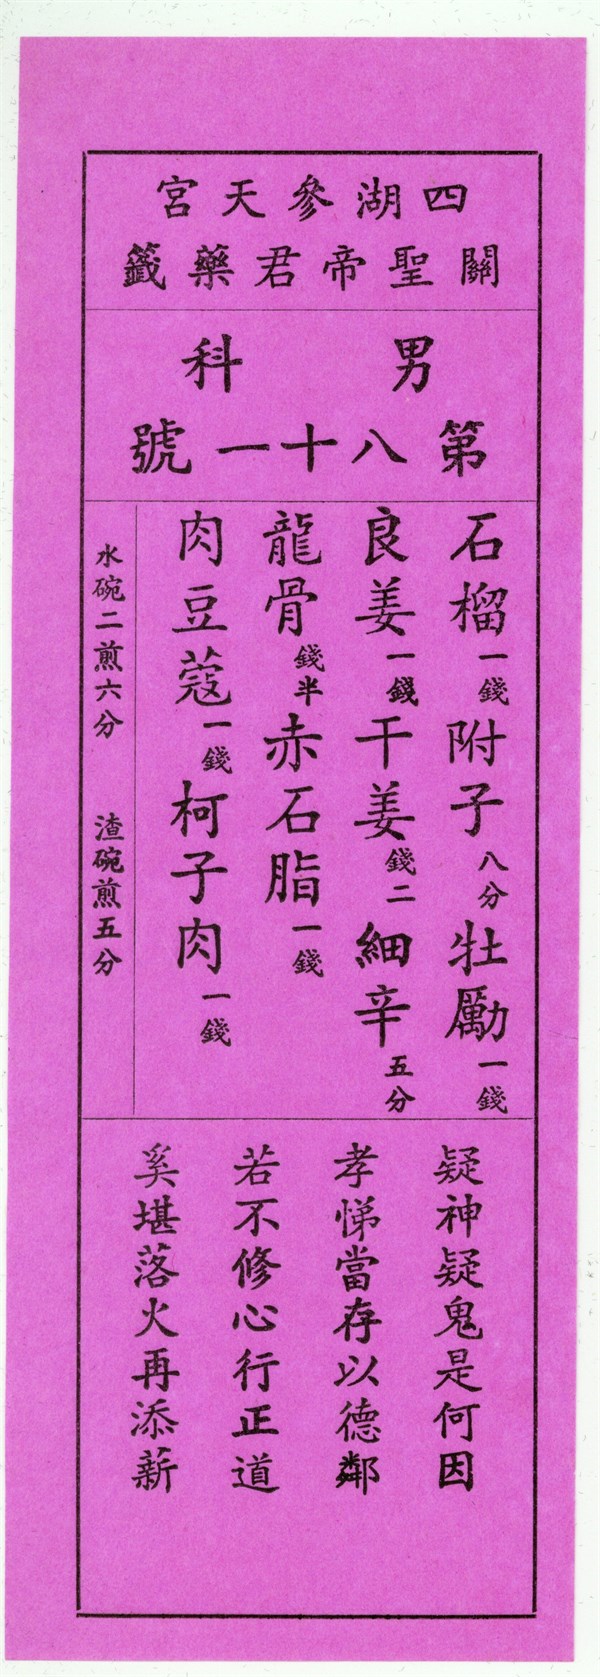 四湖參天宮
關聖帝君藥籤
男科
第八十一號
石榴一錢附子八分牡勵一錢
良姜一錢干姜錢二細辛五分
龍骨錢半赤石脂一錢
肉豆蔻一錢柯子肉一錢
水碗二煎六分 渣碗煎五分
疑神疑鬼是何因
孝悌當存以德鄰
若不修心行正道
奚堪落火再添薪